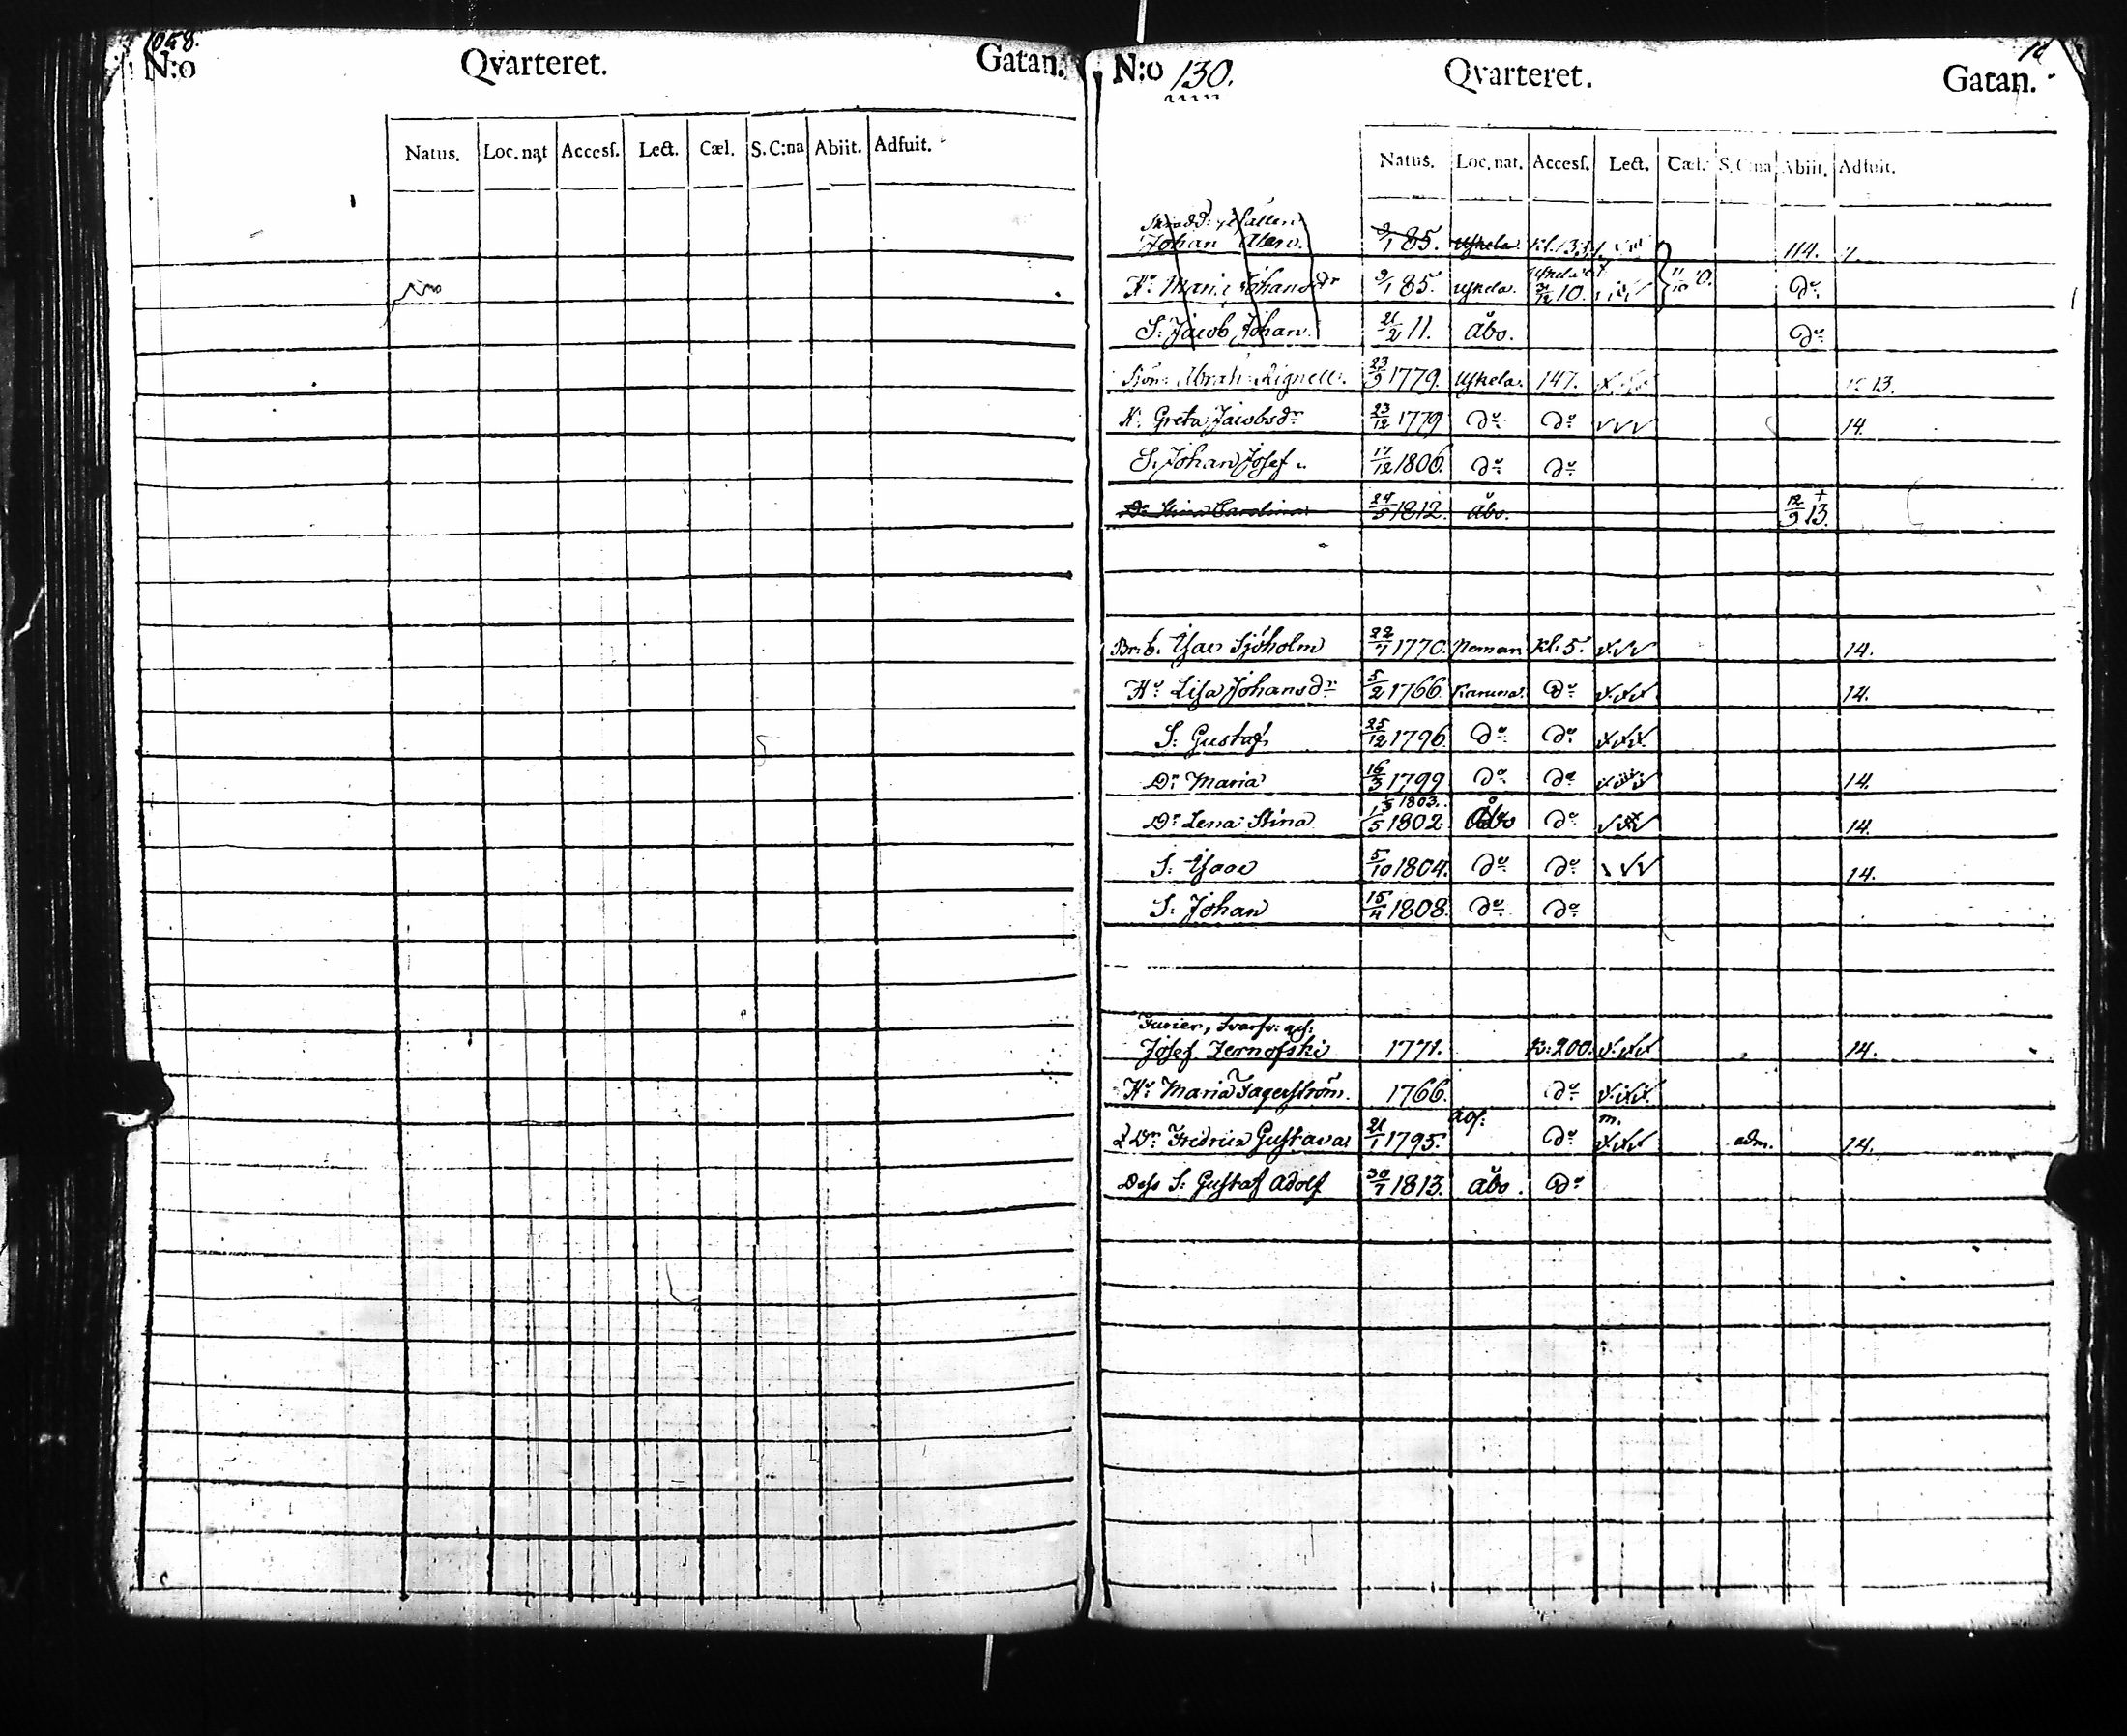 N:o Qvarteret. Gatan.
Natus. Loc. nat Accesſ. Lect. Cæl. S. C:na Abiit. Adfuit.
N:o 130. Qvarteret. Gatan.
Natus. Loc. nat. Accesſ. Lect. Cæl. S. C:na Abiit. Adfuit.
Johan 85. 114.
Hu Maria Johansdr 9/1 85. Uskela. 31/12 10. do
S: Jacob Johan. 21/2 11. Åbo. do
Abrah: Lignell. 23/9 1779. Uskela. 147. 13.
H: Greta Jacobsdr 23/12 1779 do do 14.
S: Johan Josef 17/12 1806. do do
Dr Stina Carolina 24/5 1812. Åbo. 12/9 13. +
Br: b. Isac Sjöholm 22/7 1770. Neman Kl: 5. 14.
Hu Lisa Johansdr 5/2 1766 Karuna. do 14.
S: Gustaf 25/12 1796. do do
Dr Maria 16/3 1799 do do 14.
1803.
Dr Lena Stina 1/5 1802 Åbo do 14.
S: Isac 5/10 1804. do do 14.
S: Johan 15/4 1808. do do
Josef Zernofski 1771. K: 200. 14.
Hu Maria Fagerström. 1766. do
Dr Fredrica Gustava 21/1 1795. do m. adm. 14.
Dess S: Gustaf Adolf 30/7 1813. Åbo. do